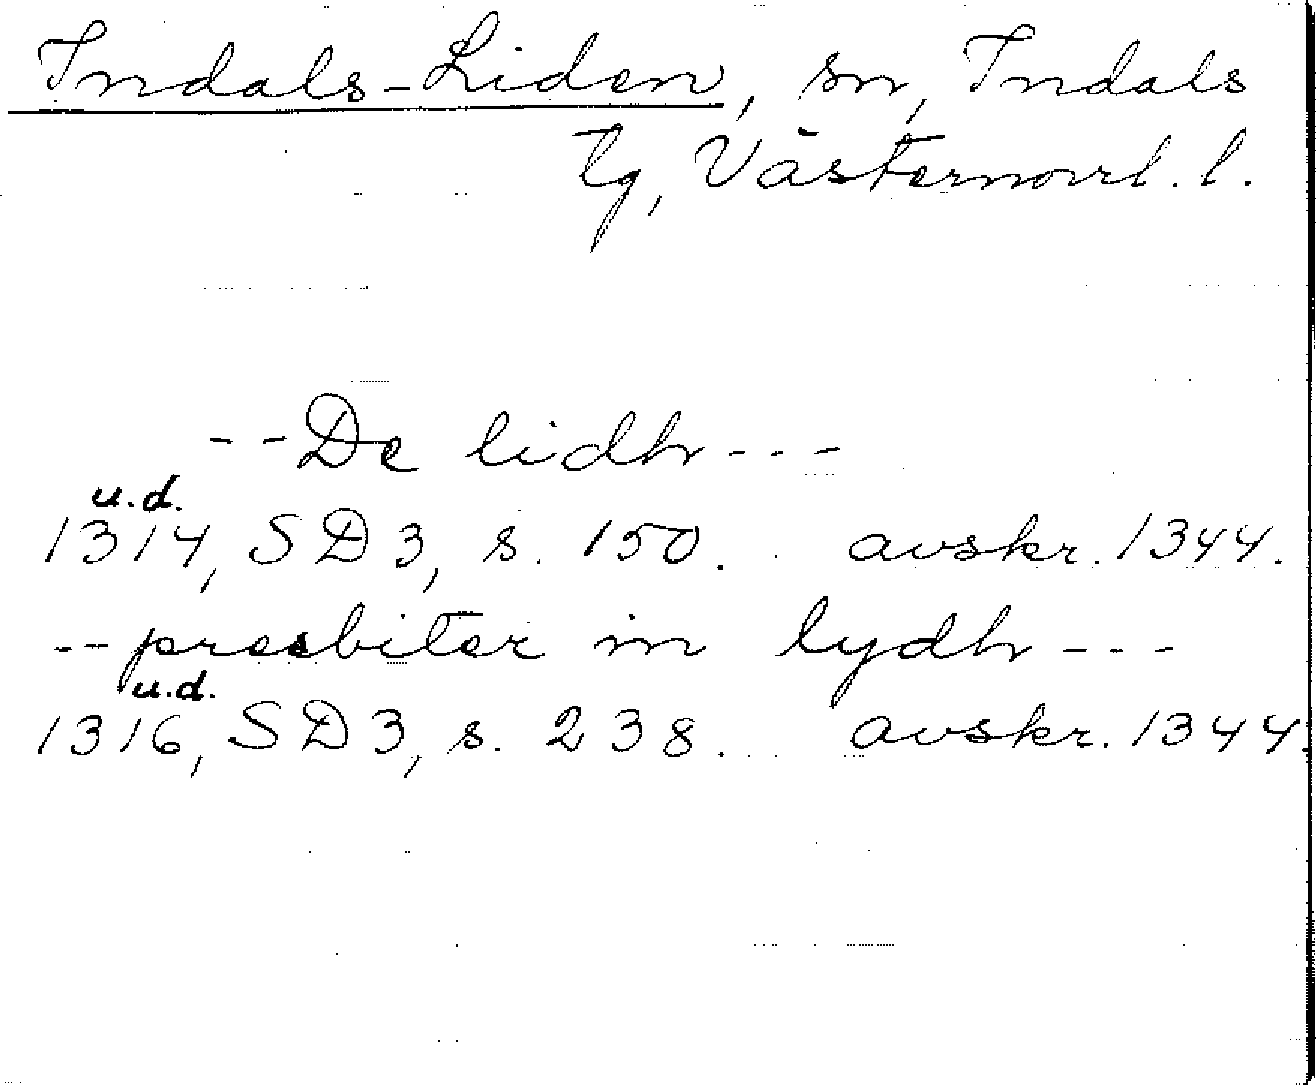 Indals-Liden, sn, Indals
tg, Västernorrl. l.
--De lidh---
u.d.
1314, SD3, s. 150. avskr. 1344.
--presbiter in lydh---
u.d.
1316, SD3, s. 238. avskr. 1344.